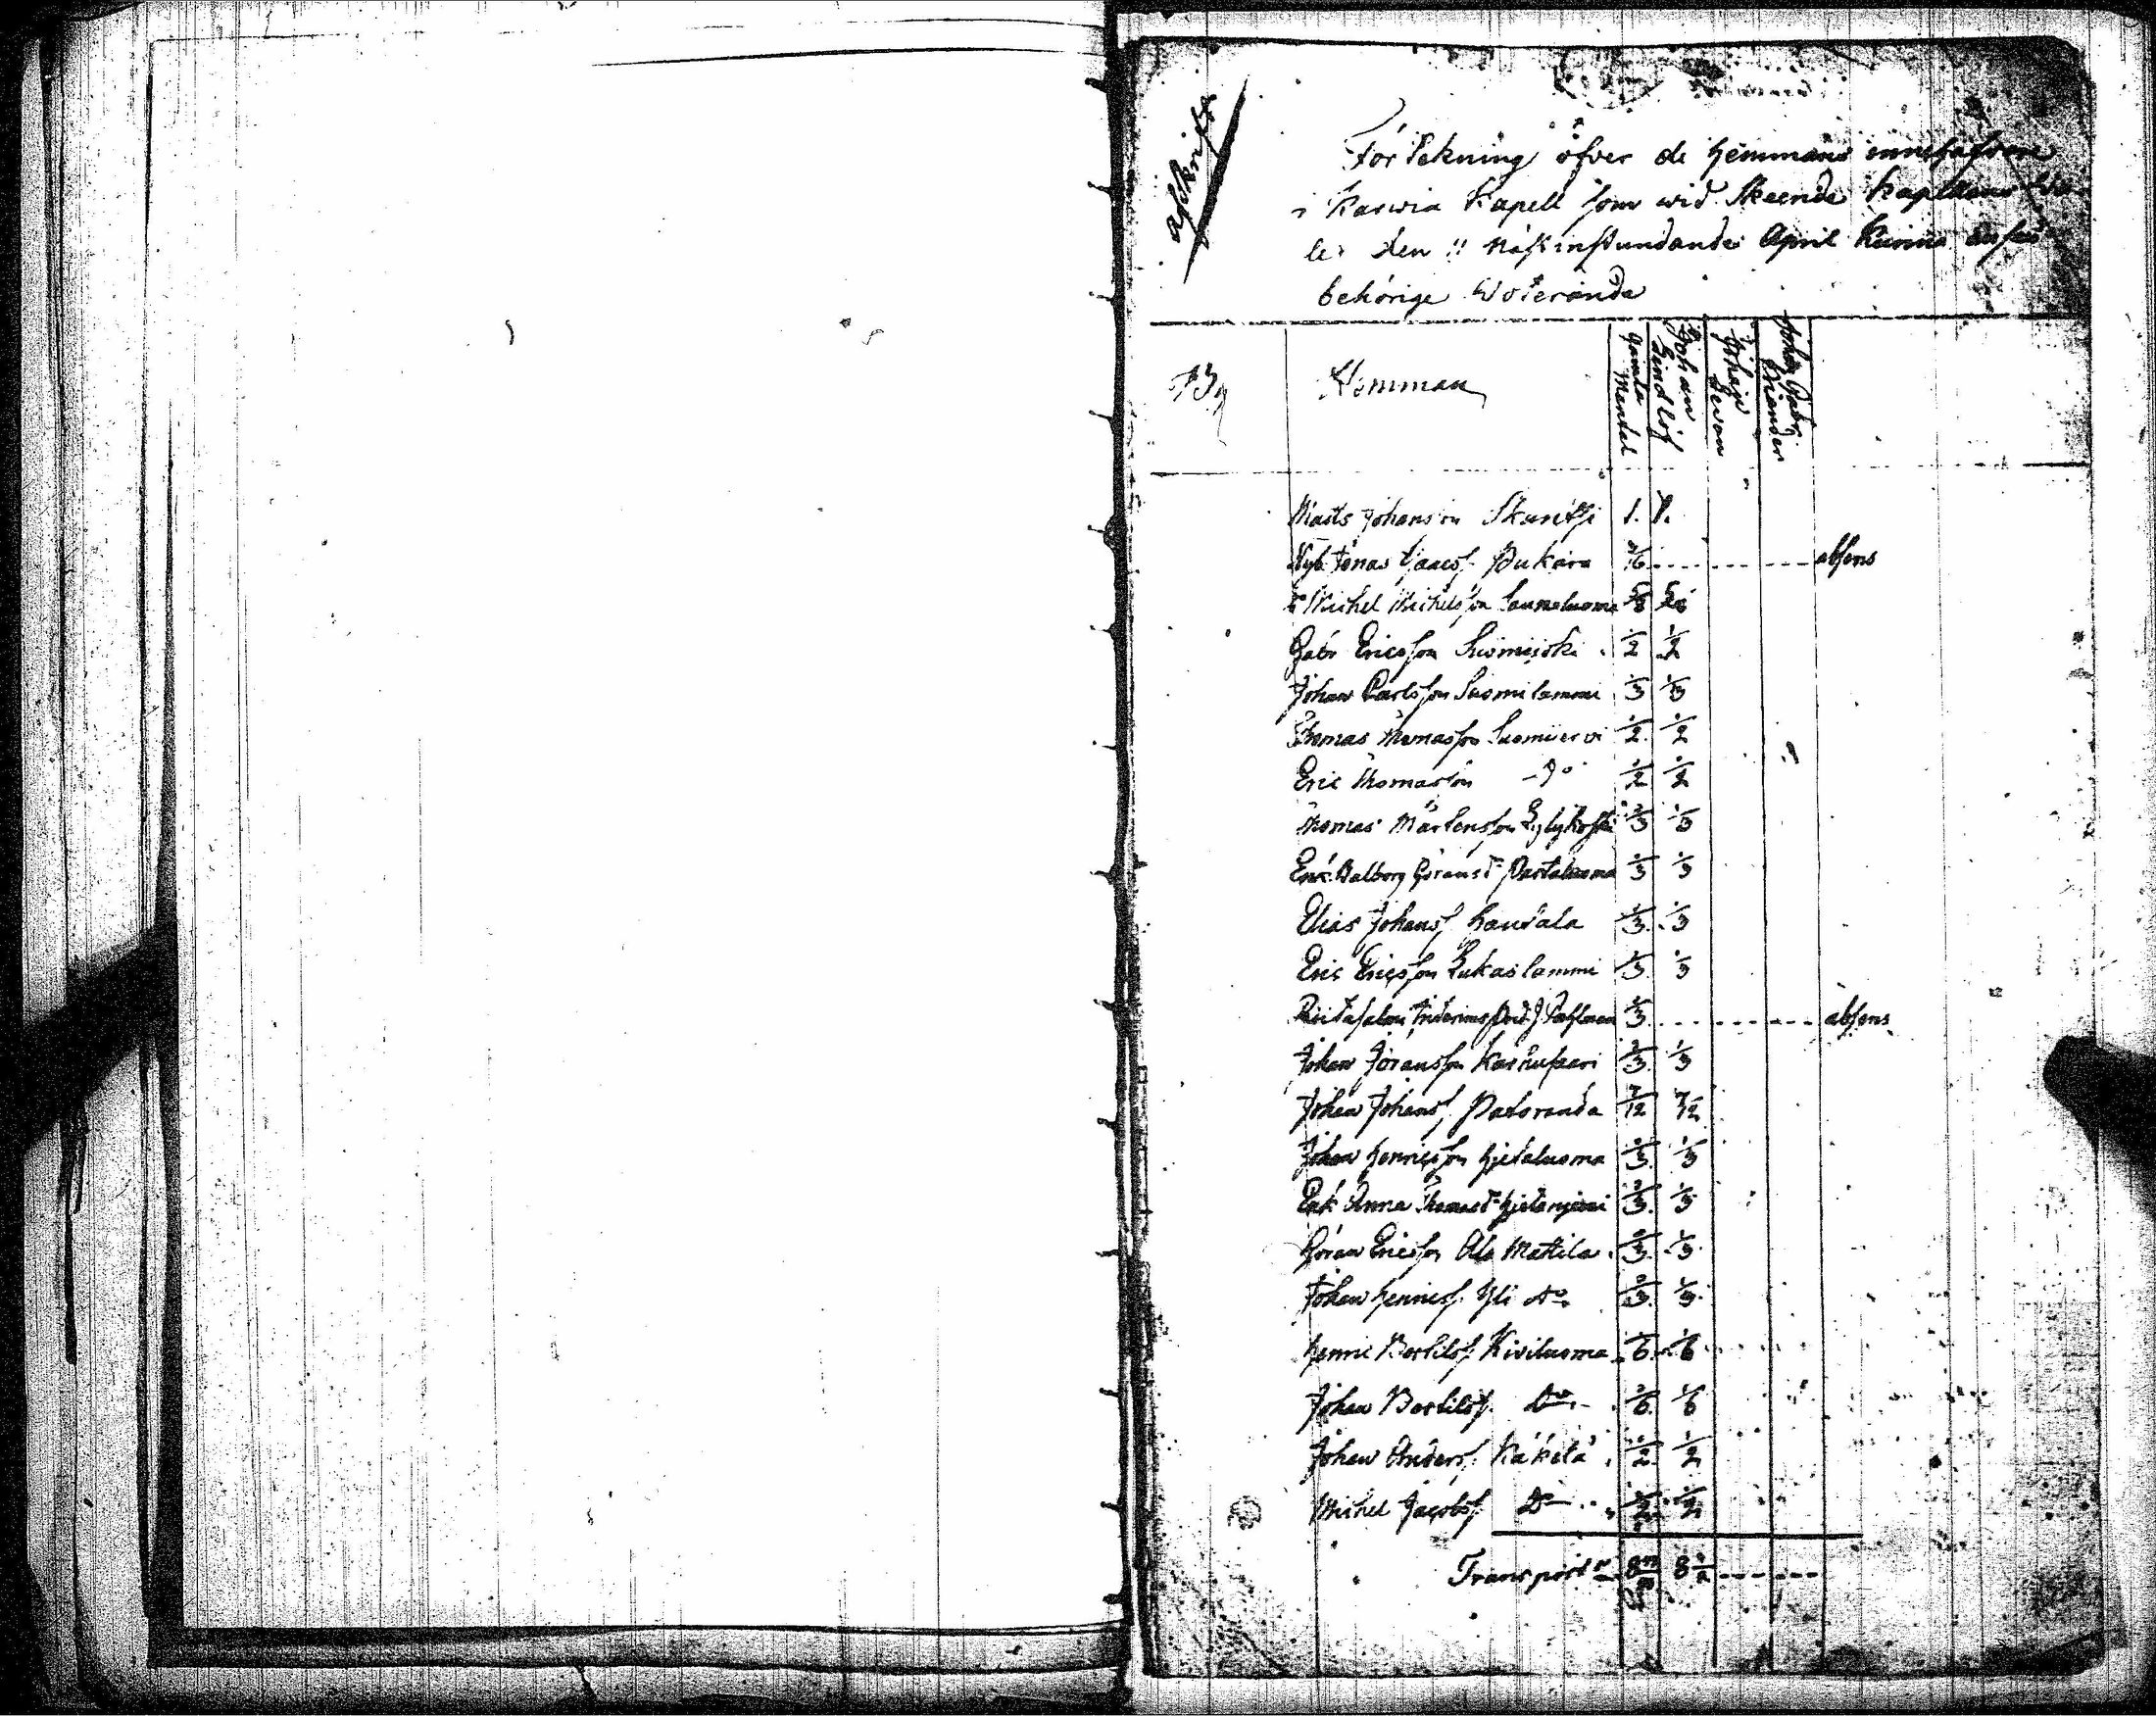 afskrift
Förtekning öfver de hemmans innehafvare
i Karvia Kapell som wid skeende Kapellans Wa-
le den 11 nästinstundande April kunna anses
behörige Woterande
Hemman
Gamla Mental
Johan Lindlöf
Johan
Johan Gabr
Matts Johansson Skantzi 1. 1.
Nyb. Jonas Isacss. Pukara 3/16 absens
Michel Michelsson Saunaluoma 5/8 5/8
Gabr Ericsson Suomijoki 1/2 1/2
Johan Carlsson Suomilammi 1/3 1/3
Thomas Thomasson Suomijervi 1/2 1/2
Eric Thomasson - D° 1/2 1/2
Thomas Mårtensson Kylykoski 1/3 1/3
Enk. Walborg Göransd. Pastoluoma 1/3 1/3
Elias Johanss. Hautala 1/3 1/3
Eric Ericsson Lukaslammi 1/3 1/3
1/3 absens
Johan Göransson Karhupari 1/3 1/3
Johan Johanss. Patoranda 7/12 7/12
Johan Henricsson Hietaluoma 1/3 1/3
Enk Anna Thomasd. Hietaniemi 1/3 1/3
Göran Ericsson Ala Mattila 1/3 1/3
Johan Henricss. Yli do 1/3 1/3
Henric Bertilss. Kiviluoma 1/6 1/6
Johan Bertilss. Do 1/6 1/6
Johan Anderss. Käkelä 1/2 1/2
Michel Jacobss. Do 1/2 1/2
Transport 8 8